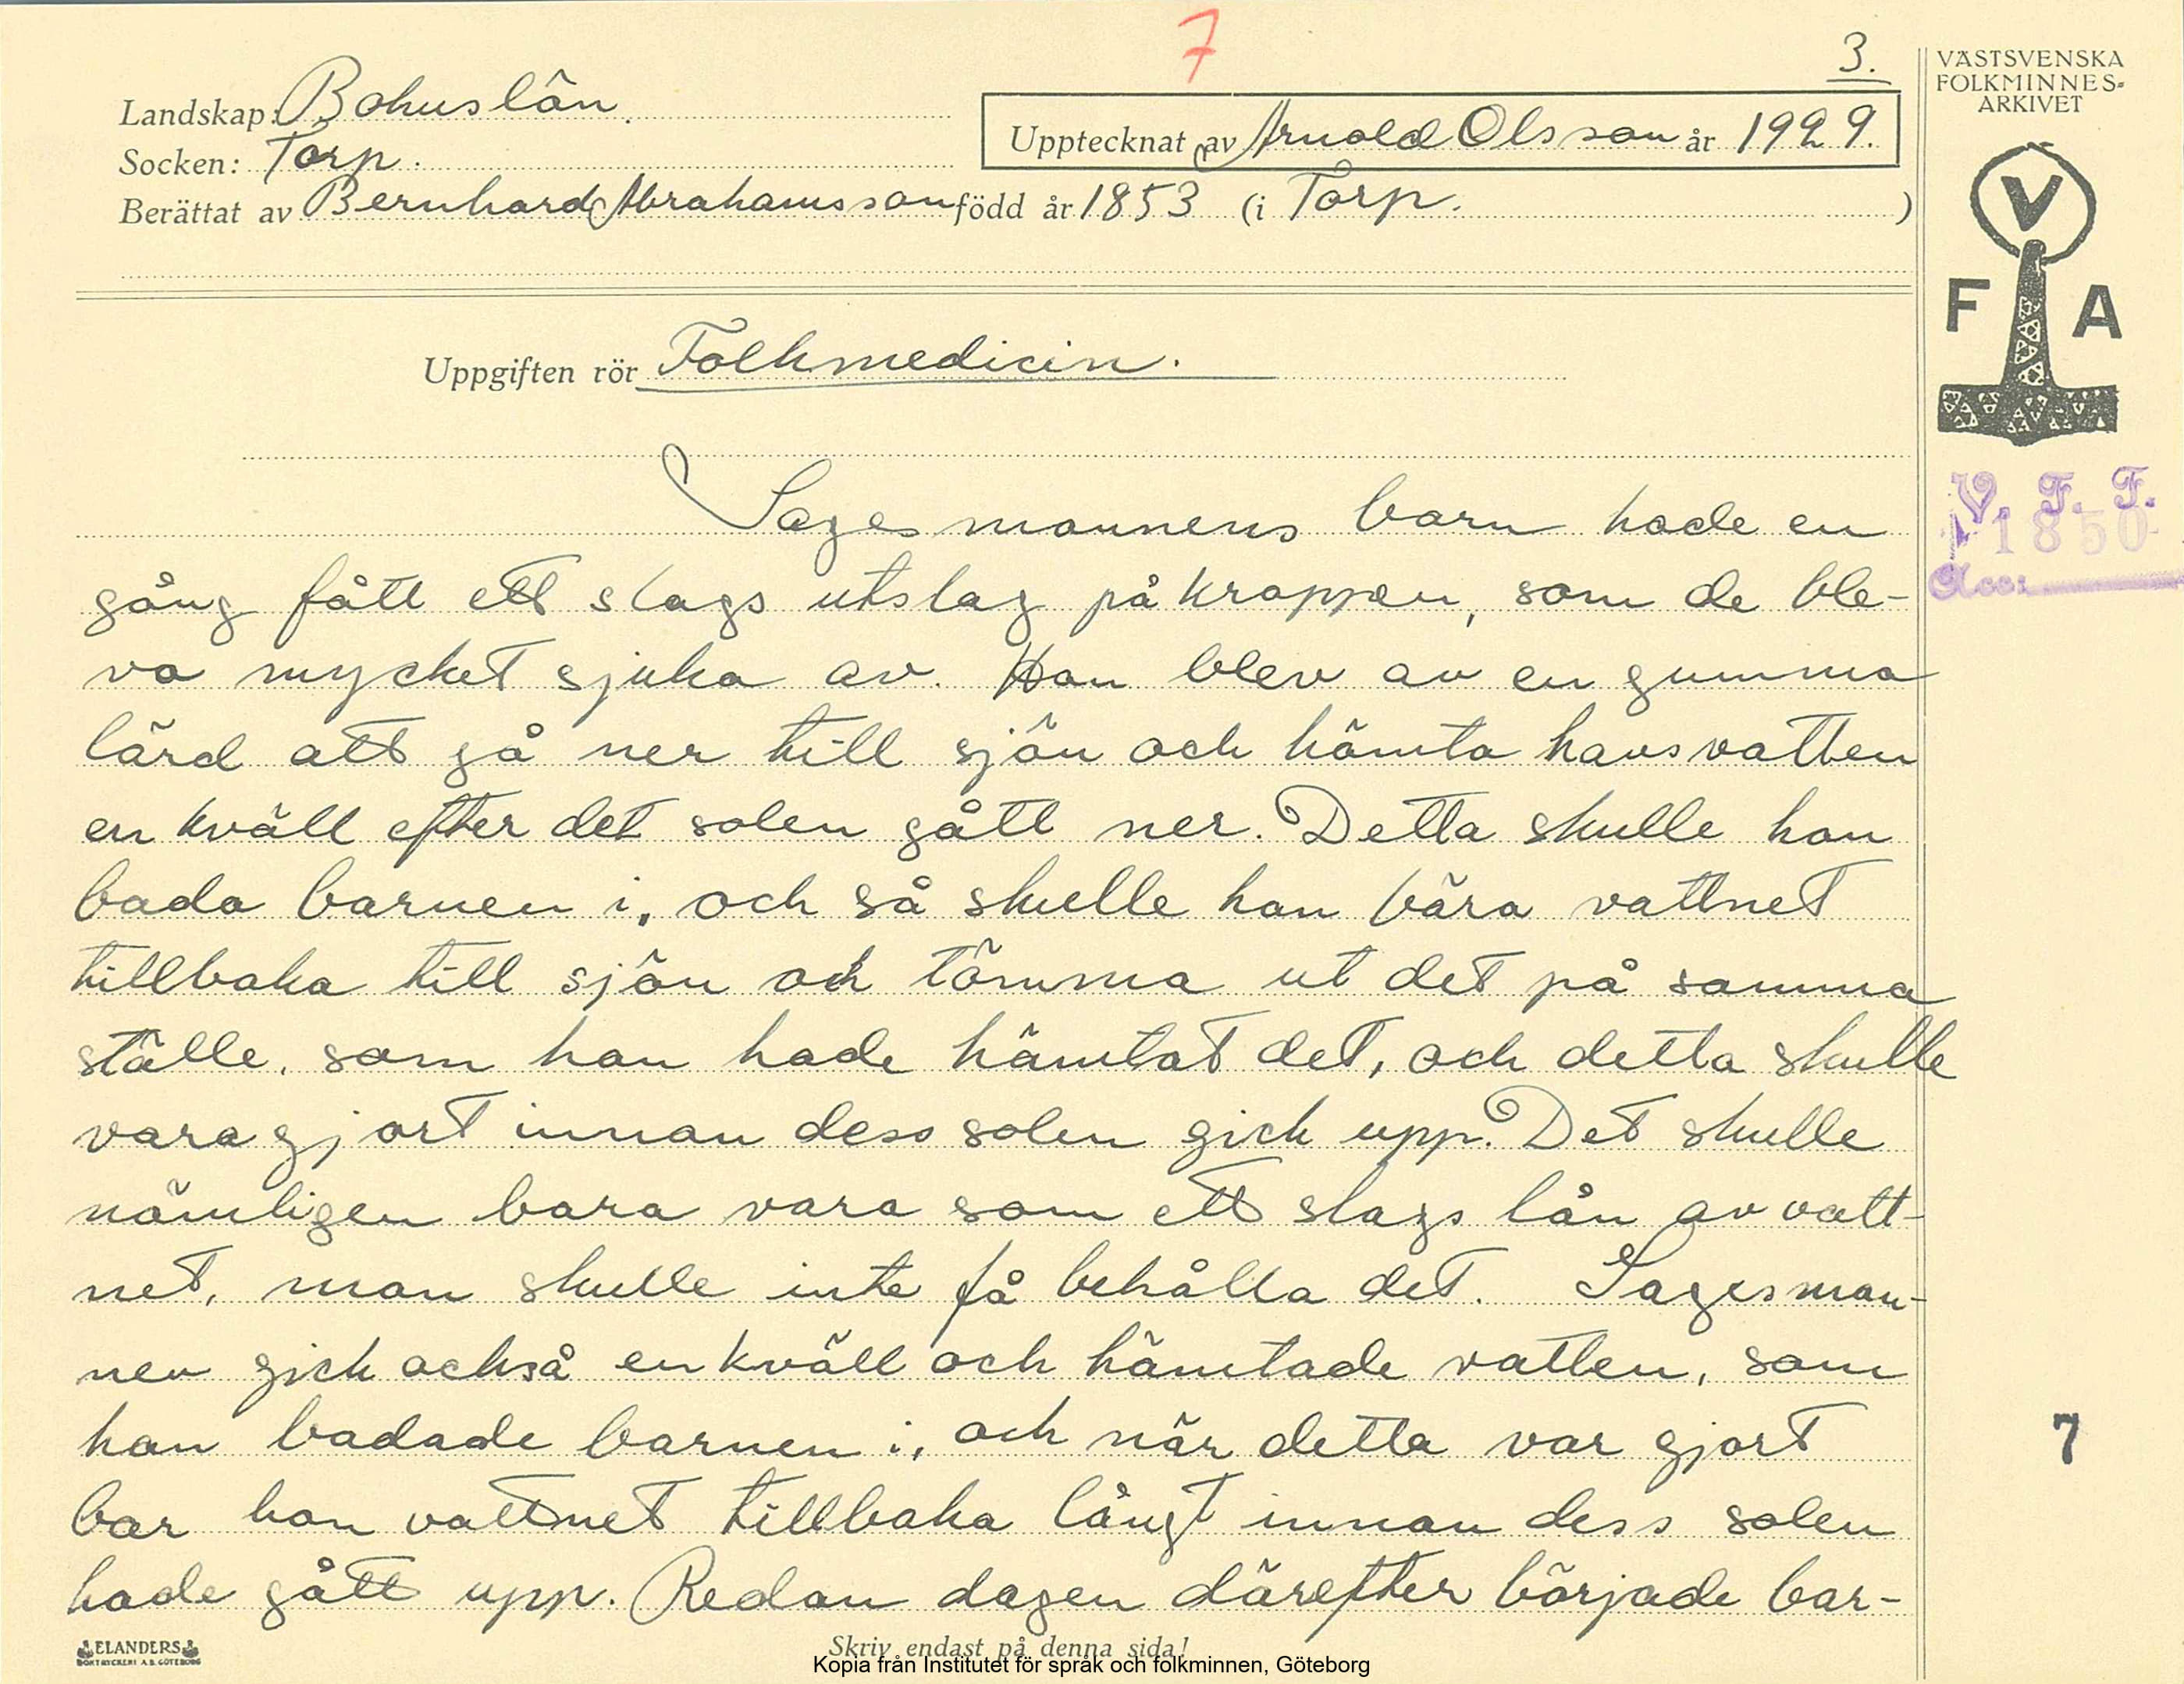 7
3.
VÄSTSVENSKA
FOLKMINNES-
ARKIVET
Landskap: Bohuslän.
Upptecknat av Arnold Olsson år 1929.
Socken: Torp.
Berättat av Bernhard Abrahamsson född år 1853 (i Torp. )
V
F A
Uppgiften rör Folkmedicin.
V. F. F.
1850
Acc.
Sagesmannens barn hade en
gång fått ett slags utslag på kroppen, som de ble-
vo mycket sjuka av. Han blev av en gumma
lärd att gå ner till sjön och hämta havsvatten
en kväll efter det solen gått ner. Detta skulle han
bada barnen i, och så skulle han bära vattnet
tillbaka till sjön och tömma ut det på samma
ställe, som han hade hämtat det, och detta skulle
vara gjort innan dess solen gick upp. Det skulle
nämligen bara vara som ett slags lån av vatt-
net, man skulle inte få behålla det. Sagesman-
nen gick också en kväll och hämtade vatten, som
han badade barnen i, och när detta var gjort
bar han vattnet tillbaka långt innan dess solen
hade gått upp. Redan dagen därefter började bar-
7
ELANDERS
BOKTRYCKERI A.B. GÖTEBORG
Skriv endast på denna sida!
Kopia från Institutet för språk och folkminnen, Göteborg